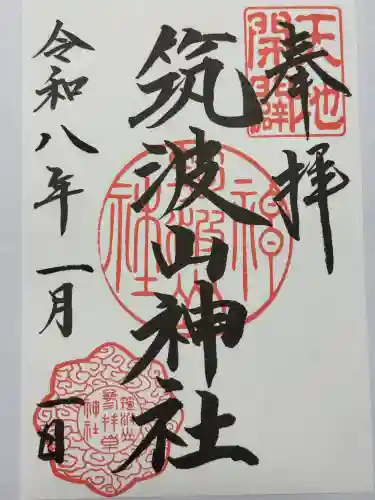 奉拝
天地開闢
筑波山神社
筑波山神社
令和八年一月一日
筑波山神社
参拝章